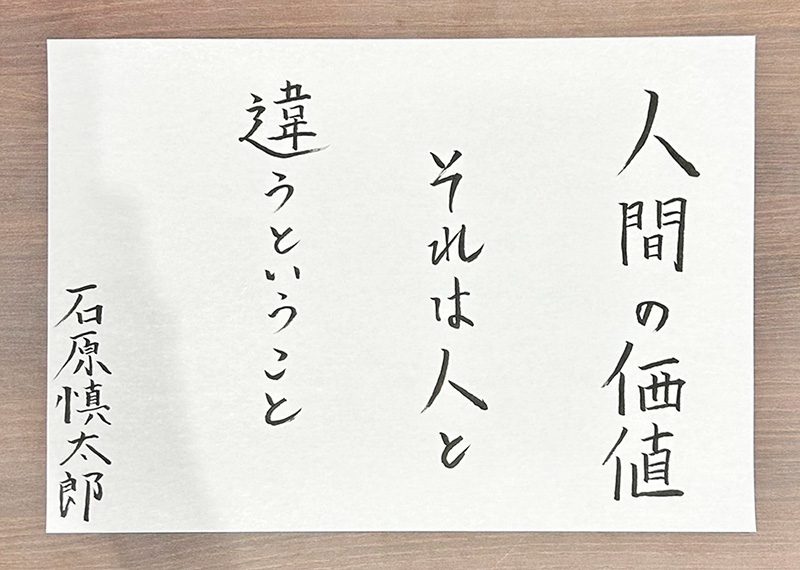 人間の価値
それは人と
違うということ
石原慎太郎